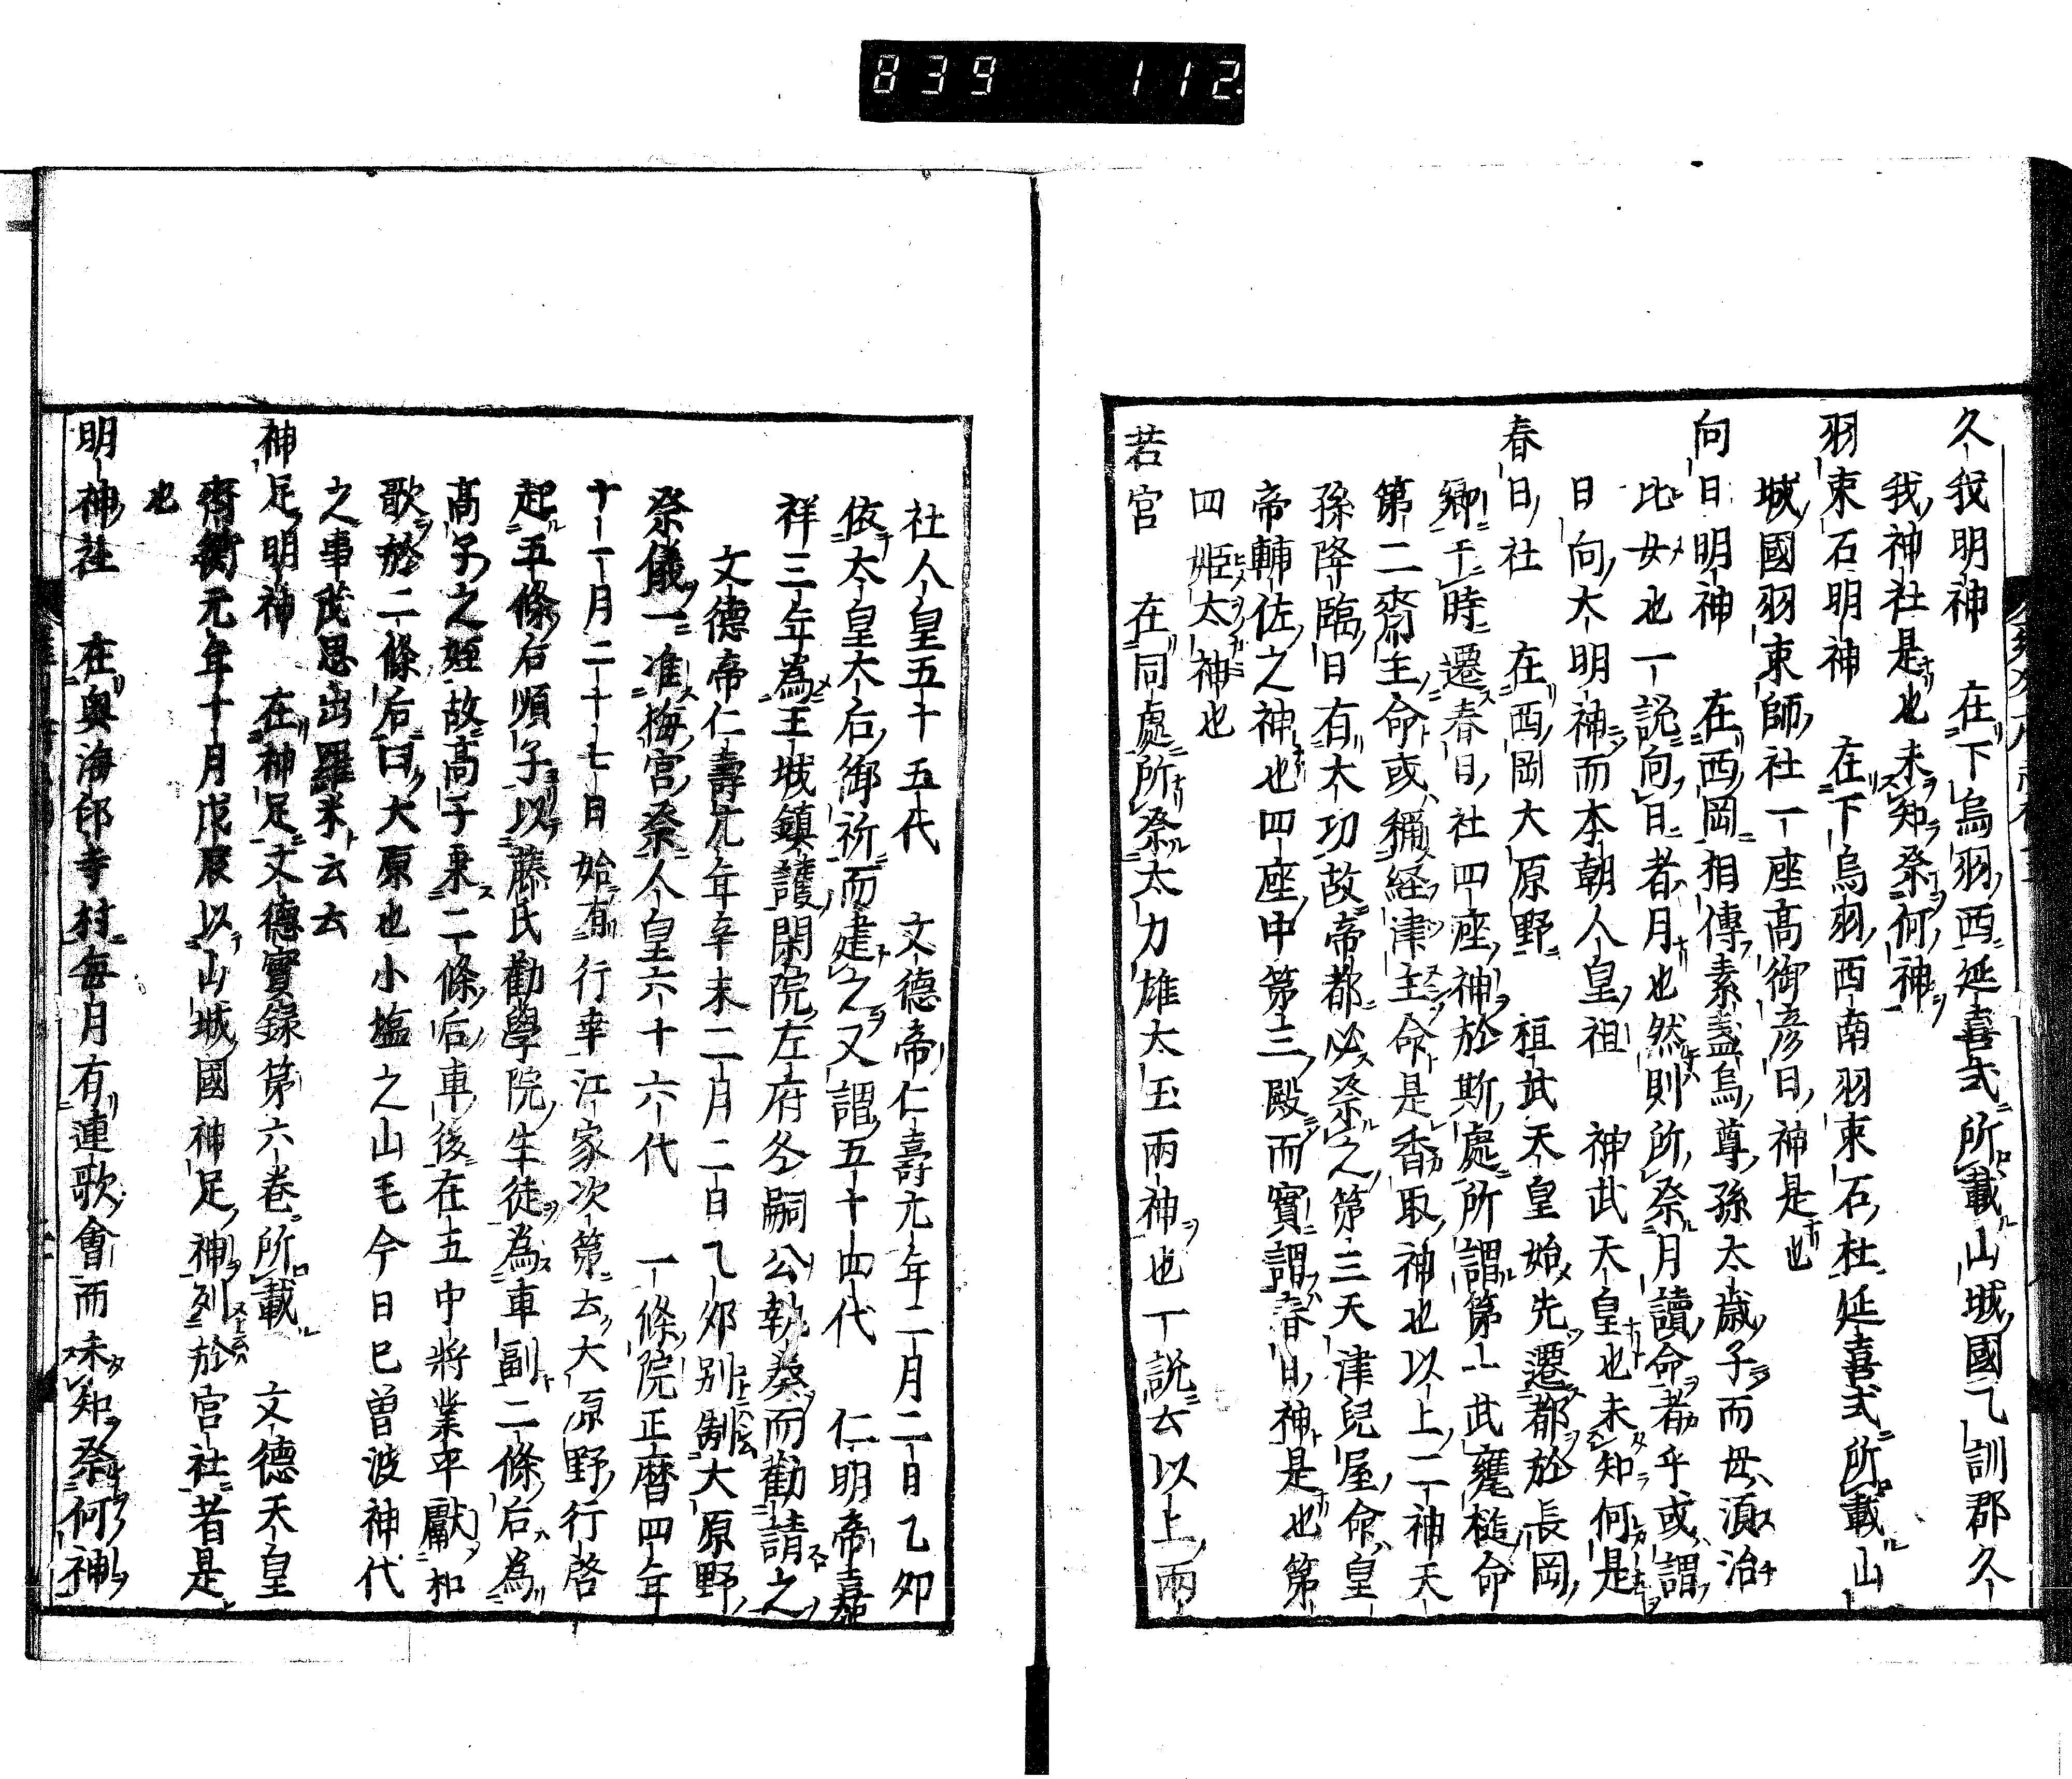 839 112.
久我明神 在下烏羽西延喜式所載山城國乙訓郡久
我神社是也未知祭何神
羽束石明神 在下烏羽西南羽束石杜延喜式所載山
城國羽束師社一座高御彦日神是也
向日明神 在西岡相傳素盞烏尊孫太歳子而母湏治
比女也一説向日者月也然則所祭月讀命者乎或謂
日向大明神而本朝人皇祖 神武天皇也未知何是
春日社 在西岡大原野 祖武天皇始先遷都於長岡
卿干時遷春日社四座神於斯處所謂第一武甕槌命
第二齋主命或稱経津主命是香取神也以上二神天
孫降臨日有大功故帝都必祭之第三天津兒屋命皇
帝輔佐之神也四座中第三殿而實謂春日神是也第
四姫太神也
若宮 在同處所祭太力雄太玉兩神也一説云以上兩
社人皇五十五代 文德帝仁壽元年二月二日乙夘
依太皇太后御祈而建之又謂五十四代 仁明帝嘉
祥三年為王城鎮護閑院左府冬嗣公執奏而勸請之
文德帝仁壽元年辛未二月二日乙夘別制大原野
祭儀一准梅宮祭人皇六十六代 一條院正暦四年
十一月二十七日始有行幸江家次第云大原野行啓
起五條后順子以藤氏勸學院生徒為車副二條后為
高子之姪故高子乗二條后車後在五中將業平獻和
歌於二條后曰大原也小塩之山毛今日巳曽波神代
之事茂思出羅米云云
神足明神 在神足文德實錄第六巻所載 文德天皇
齊衡元年十月戊辰以山城國神足神列於官社者是
也
明神社 在奥海印寺村毎月有連歌會而未知祭何神